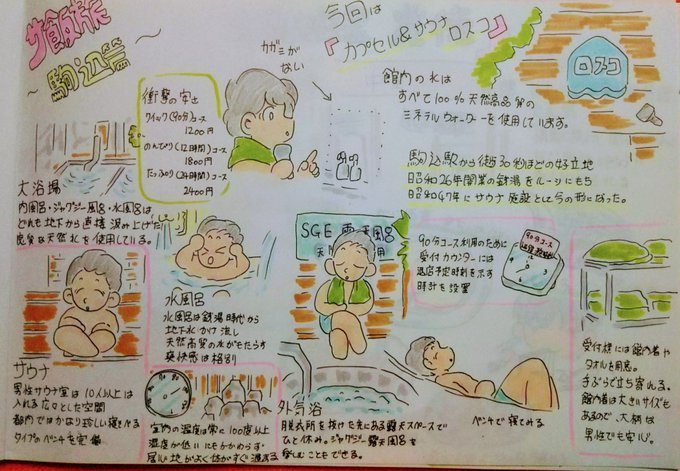 サ飯旅
〜駒込篇〜
今回は
『カプセル&サウナ
ロスコ』
ロスコ
カガミが
ない
衝撃の安さ
クイック(90分)コース
1200円
のんびり(12時間)コース
1800円
たっぷり(24時間)コース
2400円
館内の水は
すべて100%天然高品質の
ミネラルウォーターを使用しています。
駒込駅から徒歩30秒ほどの好立地
昭和26年開業の銭湯をルーツにもち
昭和47年にサウナ施設として今の形になった。
大浴場
内風呂・ジャグジー風呂・水風呂は
どれも地下から直接汲み上げた
良質な天然水を使用している。
水風呂
水風呂は銭湯時代から
地下水かけ流し
天然高質の水がもたらす
爽快感は格別
SGE
90分コース利用のために
受付カウンターには
退店予定時刻を示す
時計を設置
90分コース
サウナ
男性サウナ室は10人以上は
入れる広々とした空間
都内ではかなり珍しい寝そべる
タイプのベンチを完備
室内の温度は常に100度以上
湿度が低いにもかかわらず
居心地がよく体がすぐ温まる
外気浴
脱衣所を抜けた先にある露天スペースで
ひと休み。ジャグジー露天風呂を
楽しむこともできる。
ベンチで寝てみる
受付横には館内着や
タオルを用意。
手ぶらで立ち寄れる。
館内着は大きいサイズも
あるので、大柄な
男性でも安心。